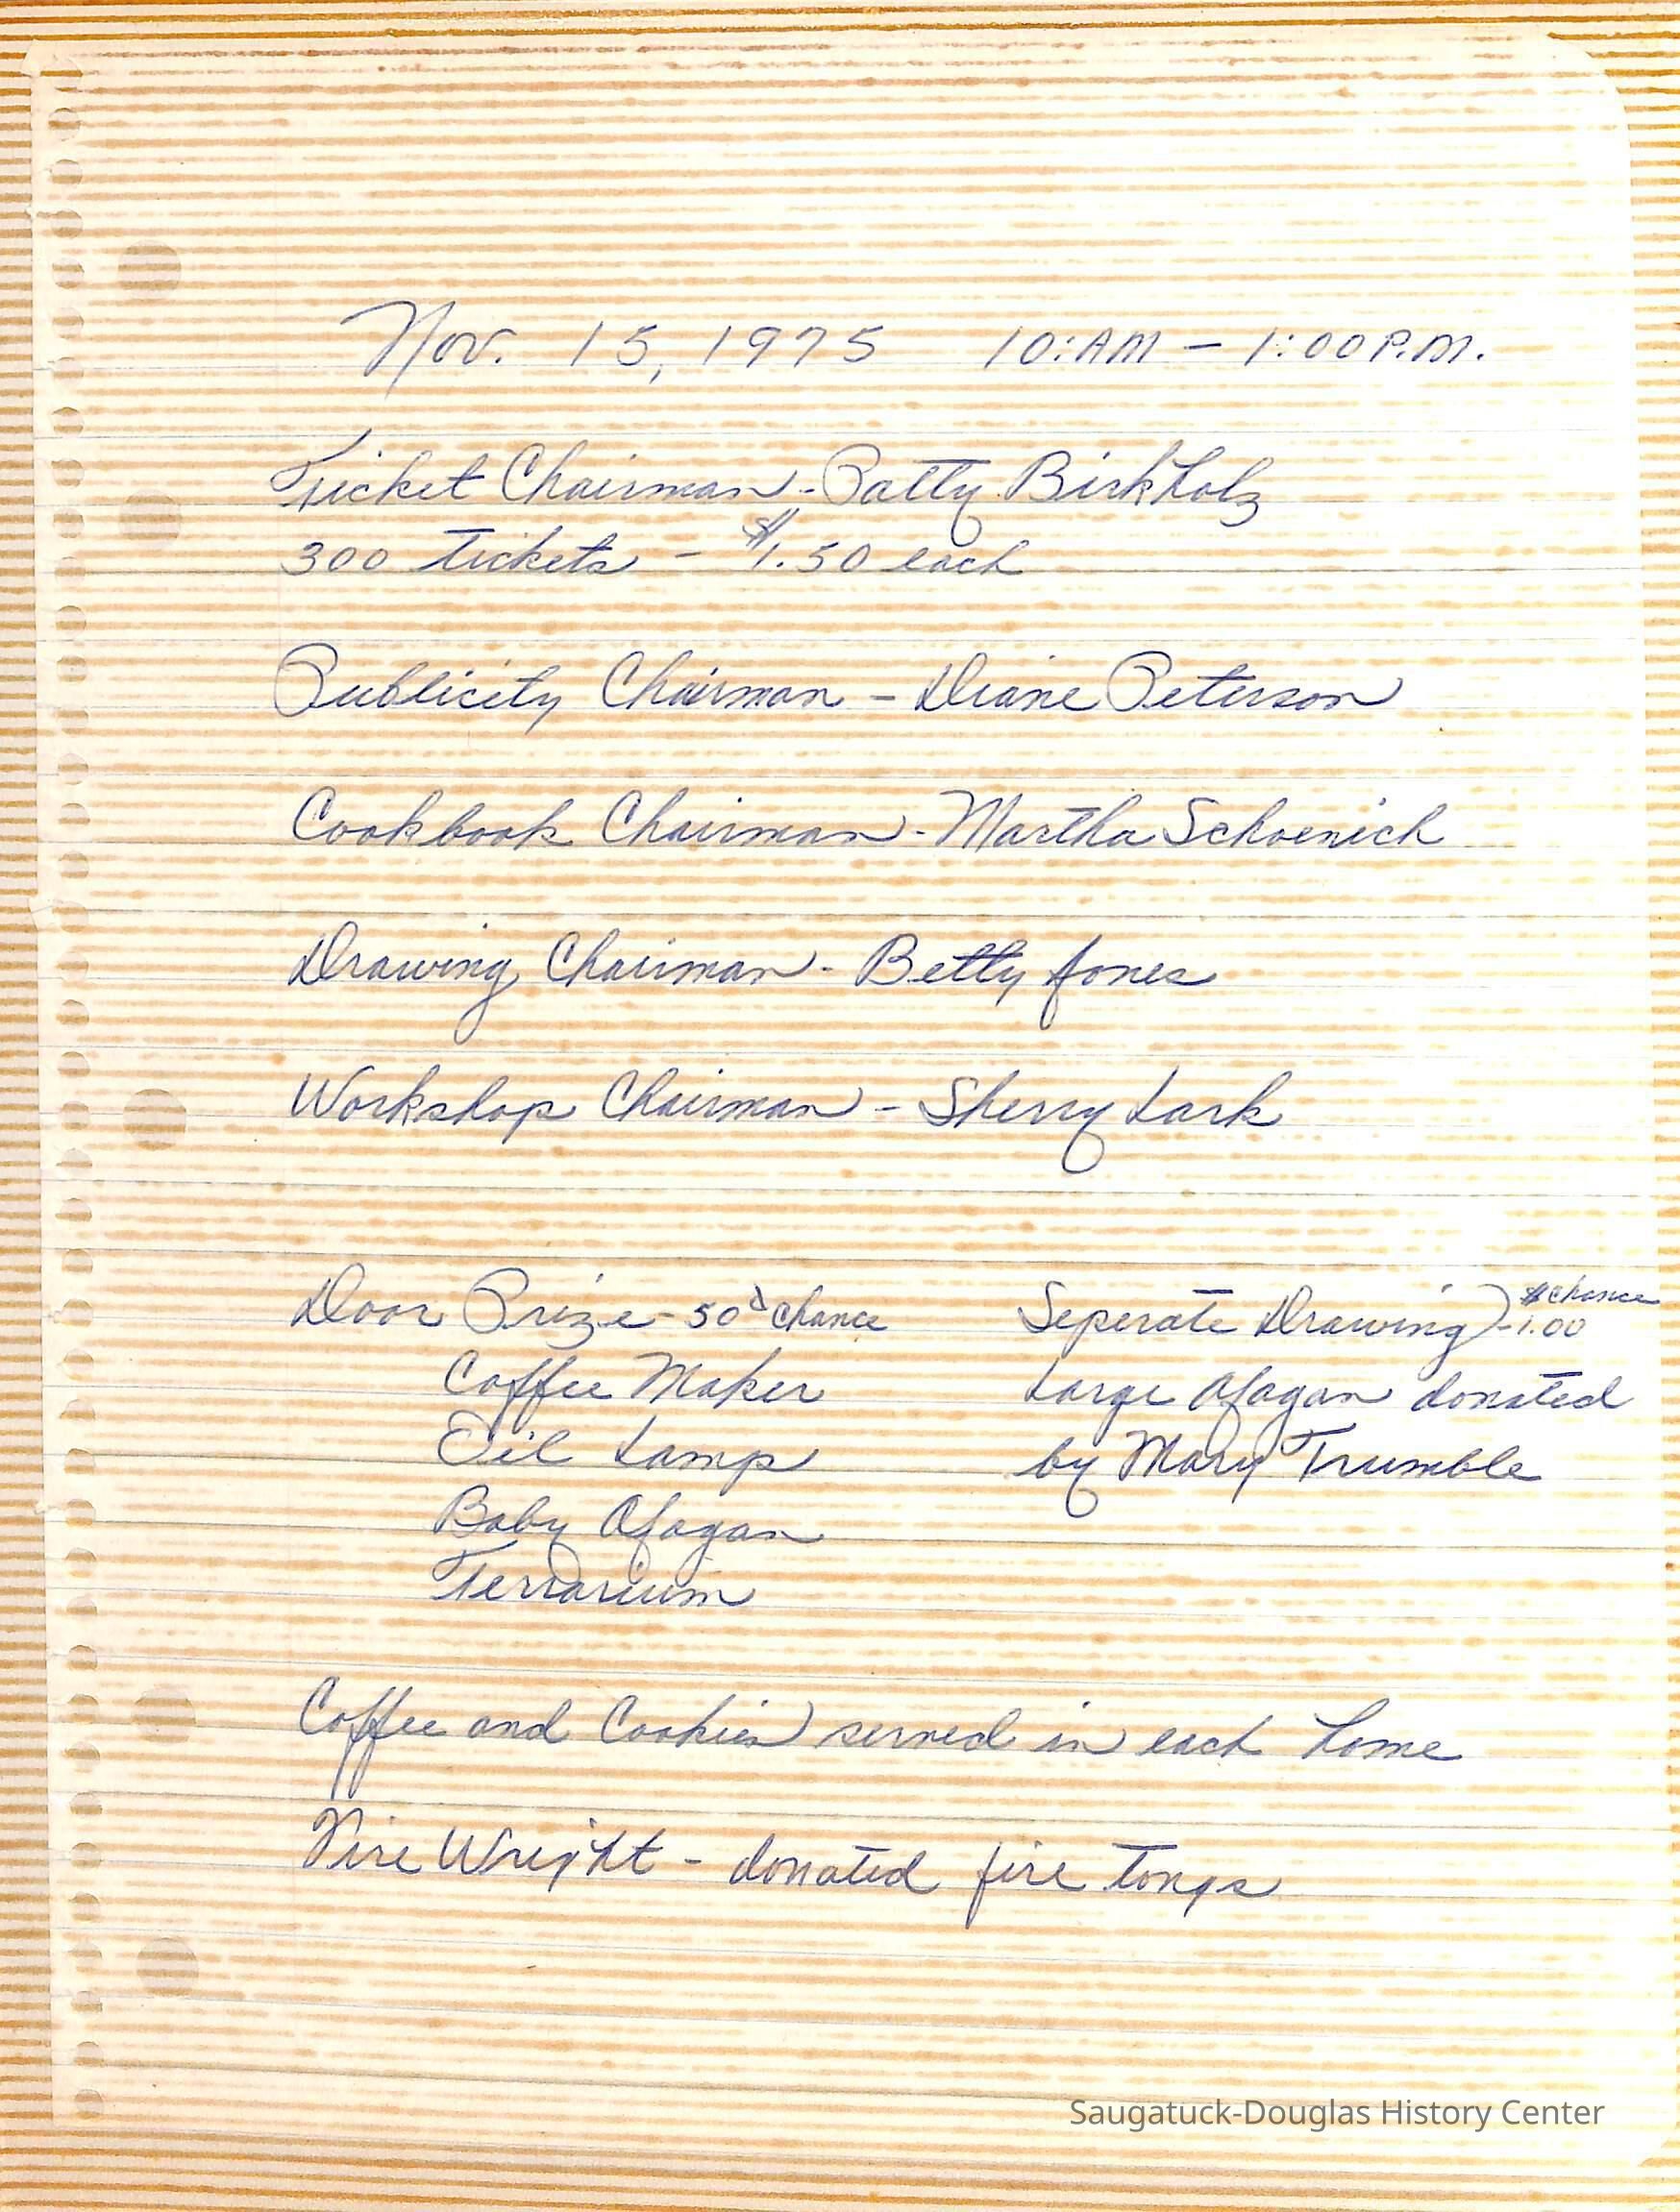 Nov. 15, 1975 10:AM - 1:00 P.M.
Ticket Chairman - Patty Birkholz
300 tickets - $1.50 each
Publicity Chairman - Diane Peterson
Cookbook Chairman - Martha Schoenich
Drawing Chairman - Betty Jones
Workshop Chairman - Sherry Lark
Door Prize - 50¢ Chance
Coffee Maker
Oil Lamp
Baby Afagan
Terrarium
Seperate Drawing - $1.00 Chance
Large Afagan donated
by Mary Trumble
Coffee and Cookies served in each home
Wright - donated fire tongs
Saugatuck-Douglas History Center